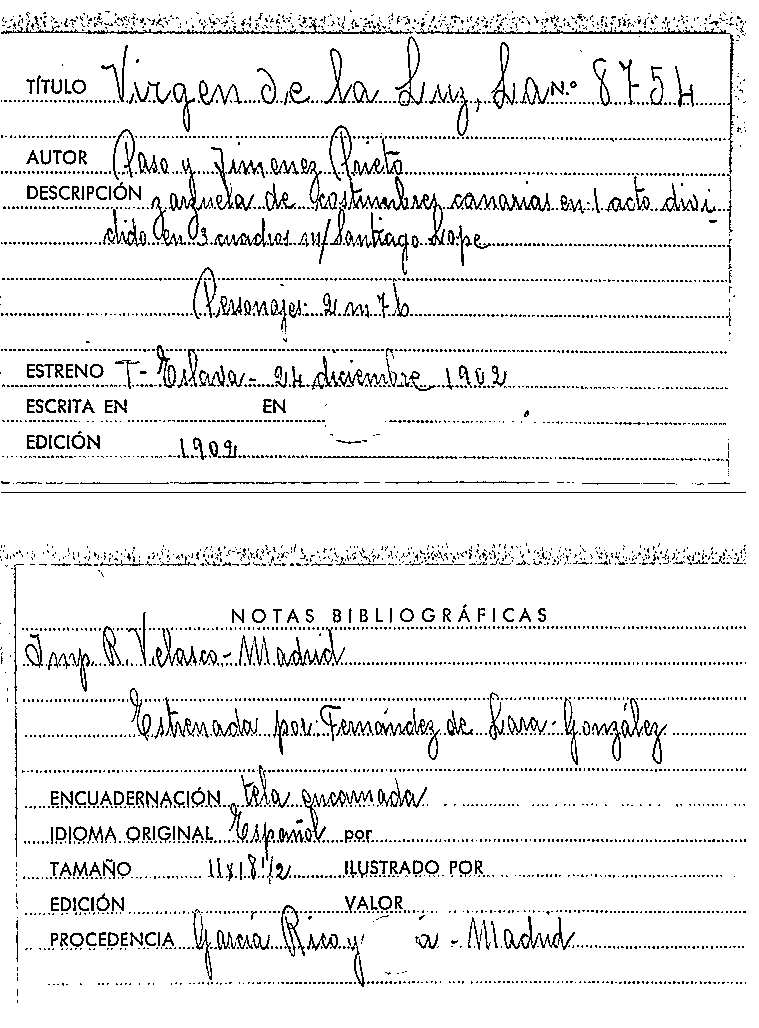 TÍTULO Virgen de la Luz, La N.º 8754
AUTOR Paso y Jimenez Prieto
DESCRIPCIÓN zarzuela de costumbres canarias en 1 acto divi-
dido en 3 cuadros m/ Santiago Lope
Personajes: 2 m 7 h
ESTRENO T- Eslava- 24 diciembre 1902
ESCRITA EN EN
EDICIÓN 1902
NOTAS BIBLIOGRÁFICAS
Imp. R. Velasco- Madrid
Estrenada por: Fernández de Lara- González
ENCUADERNACIÓN tela encarnada
IDIOMA ORIGINAL Español por
TAMAÑO 11x18 1/2 ILUSTRADO POR
EDICIÓN VALOR
PROCEDENCIA García Rico y a - Madrid